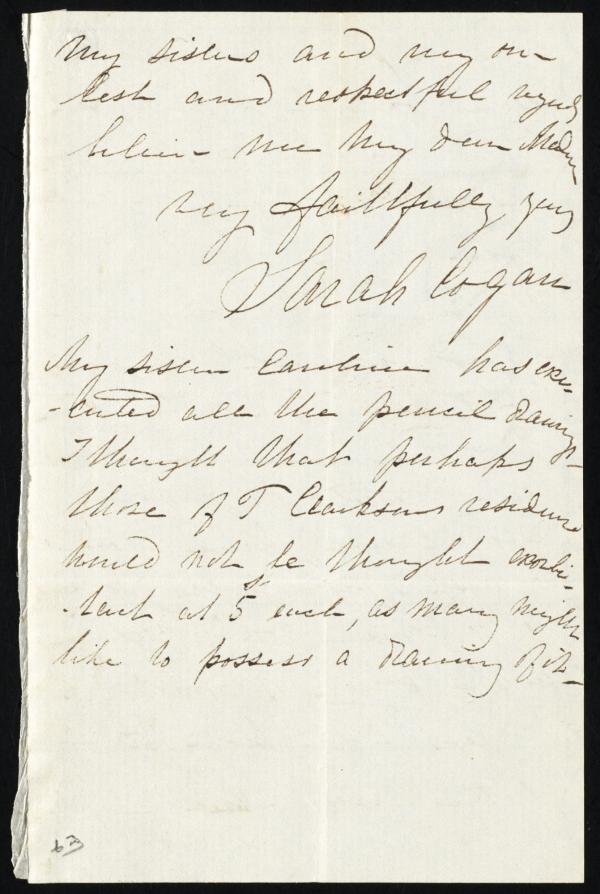 My sisters and my own
best and respectful regards
believe me My dear Madam
very faithfully yours
Sarah Cogan
My sister Caroline has exe-
-cuted all the pencil drawings
I thought that perhaps
those of T Clarksons residence
would not be thought exorbi-
-tant at 5s each, as many might
like to possess a drawing of it_
63